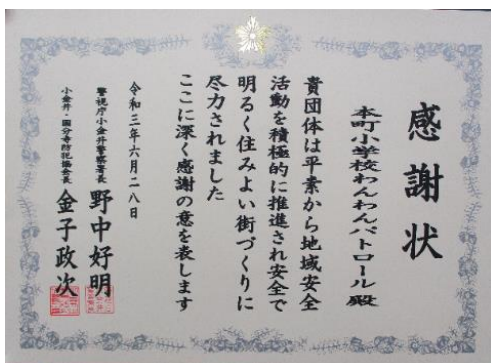 感謝状
本町小学校わんわんパトロール殿
貴団体は平素から地域安全
活動を積極的に推進され安全で
明るく住みよい街づくりに
尽力されました
ここに深く感謝の意を表します
令和三年六月二八日
警視庁小金井警察署長 野中好明
小金井・国分寺防犯協会長 金子政次